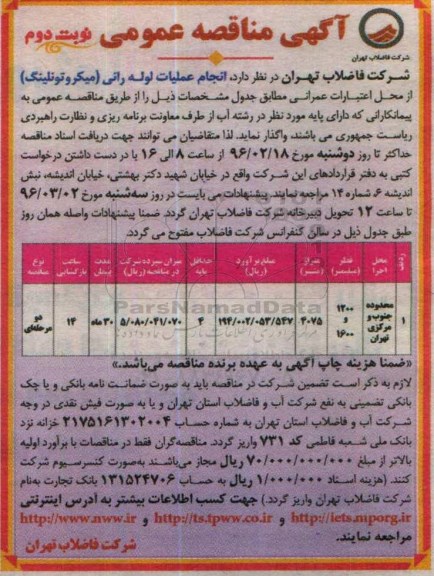 آگهی مناقصه عمومی
نوبت دوم
شرکت فاضلاب تهران
شرکت فاضلاب تهران در نظر دارد، انجام عملیات لوله رانی (میکروتونلینگ)
از محل اعتبارات عمرانی مطابق جدول مشخصات ذیل را از طریق مناقصه عمومی به
پیمانکارانی که دارای پایه مورد نظر در رشته آب از طرف معاونت برنامه ریزی و نظارت راهبردی
ریاست جمهوری می باشند، واگذار نماید. لذا متقاضیان می توانند جهت دریافت اسناد مناقصه
حداکثر تا روز دوشنبه مورخ ۹۶/۰۲/۱۸ از ساعت ۸ الی ۱۶ با در دست داشتن درخواست
کتبی به دفتر قراردادهای این شرکت واقع در خیابان شهید دکتر بهشتی، خیابان اندیشه، نبش
اندیشه ۶ شماره ۱۴ مراجعه نمایند. پیشنهادات می بایست در روز سه‌شنبه مورخ ۹۶/۰۳/۰۲
تا ساعت ۱۲ تحویل دبیرخانه شرکت فاضلاب تهران گردد. ضمنا پیشنهادات واصله همان روز
طبق جدول ذیل در سالن کنفرانس شرکت فاضلاب مفتوح می گردد.
ردیف | محل اجرا | قطر (میلیمتر) | متراژ (متر) | مبلغ برآورد (ریال) | حداقل پایه | میزان سپرده شرکت در مناقصه (ریال) | مدت پیمان | ساعت بازگشایی | نوع مناقصه
۱ | محدوده جنوب و مرکزی تهران | ۱۲۰۰ و ۱۶۰۰ | ۴۰۷۵ | ۱۹۴/۰۰۲/۰۵۳/۵۴۷ | ۴ | ۵/۰۸۰/۰۴۱/۰۷۰ | ۳۰ ماه | ۱۴ | دو مرحله‌ای
ParsNamadData
«ضمنا هزینه چاپ آگهی به عهده برنده مناقصه می‌باشد.»
لازم به ذکر است تضمین شرکت در مناقصه باید به صورت ضمانت نامه بانکی و یا چک
بانکی تضمینی به نفع شرکت آب و فاضلاب استان تهران و یا به صورت فیش نقدی در وجه
شرکت آب و فاضلاب استان تهران به شماره حساب ۲۱۷۵۱۶۱۳۰۲۰۰۴ خزانه نزد
بانک ملی شعبه فاطمی کد ۷۳۱ واریز گردد. مناقصه‌گران فقط در مناقصات با برآورد اولیه
بالاتر از مبلغ ۷۰/۰۰۰/۰۰۰/۰۰۰ ریال مجاز می‌باشند به‌صورت کنسرسیوم شرکت
کنند. (هزینه اسناد ۱/۰۰۰/۰۰۰ ریال به حساب ۱۳۱۵۲۴۷۰۶ بانک تجارت به‌نام
شرکت فاضلاب تهران واریز گردد.) جهت کسب اطلاعات بیشتر به آدرس اینترنتی
http://iets.mporg.ir و http://ts.tpww.co.ir و http://www.nww.ir
مراجعه نمایند.
شرکت فاضلاب تهران